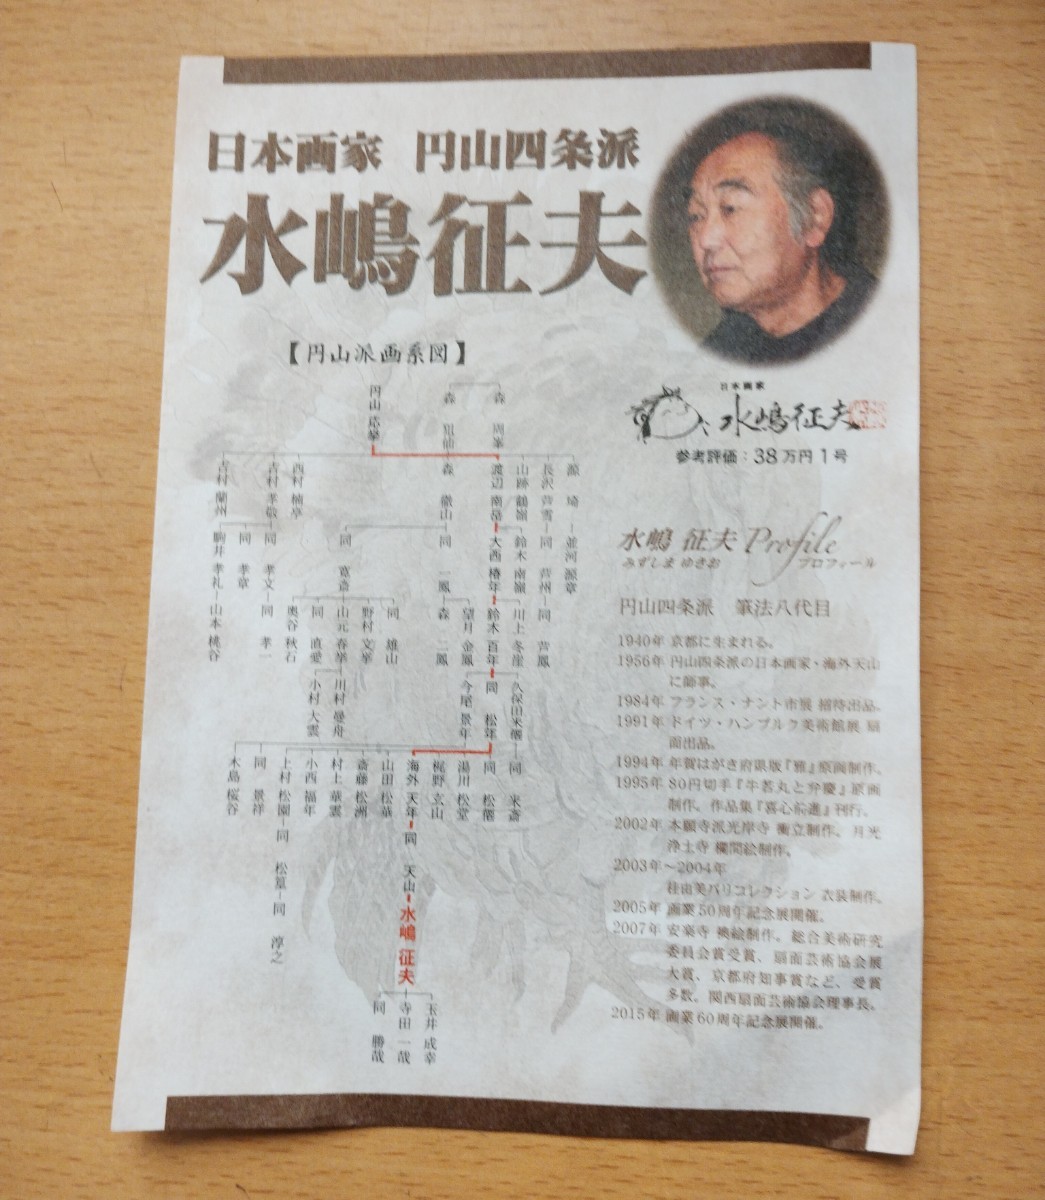 日本画家 円山四条派
水嶋征夫
【円山派画系図】
円山 応挙
森 周峯
森 狙仙
森 徹山
源 埼
並河 源章
長沢 芦雪
同 芦州
同 芦鳳
山跡 鶴嶺
渡辺 南岳
鈴木 南嶺
大西 椿年
川上 冬崖
鈴木 百年
西村 楠亭
吉村 孝敬
吉村 蘭州
同 孝文
同 孝一
同 孝章
駒井 孝礼
山本 桃谷
同 寛斎
同 一鳳
森 二鳳
望月 金鳳
同 雄山
野村 文挙
山元 春挙
同 直愛
奥谷 秋石
川村 曼舟
小村 大雲
久保田 米僊
同 米斎
同 松年
今尾 景年
同 松僊
湯川 松堂
梶野 玄山
海外 天年
山田 松華
斎藤 松洲
村上 華雲
小西 福年
上村 松園
同 松篁
同 淳之
同 景祥
木島 桜谷
同 天山
水嶋 征夫
玉井 成幸
寺田 一哉
同 勝哉
日本画家
水嶋征夫
参考評価：38万円1号
水嶋 征夫 Profile
みずしま ゆきお プロフィール
円山四条派 筆法八代目
1940年 京都に生まれる。
1956年 円山四条派の日本画家・海外天山
に師事。
1984年 フランス・ナント市展 招待出品。
1991年 ドイツ・ハンブルク美術館展 扇
面出品。
1994年 年賀はがき府県版『雅』原画制作。
1995年 80円切手『牛若丸と弁慶』原画
制作。作品集『喜心前進』刊行。
2002年 本願寺派光岸寺 衝立制作。月光
浄土寺 欄間絵制作。
2003年～2004年
桂由美パリコレクション 衣装制作。
2005年 画業50周年記念展開催。
2007年 安楽寺 襖絵制作。総合美術研究
委員会賞受賞、扇面芸術協会展
大賞、京都府知事賞など、受賞
多数。関西扇面芸術協会理事長。
2015年 画業60周年記念展開催。